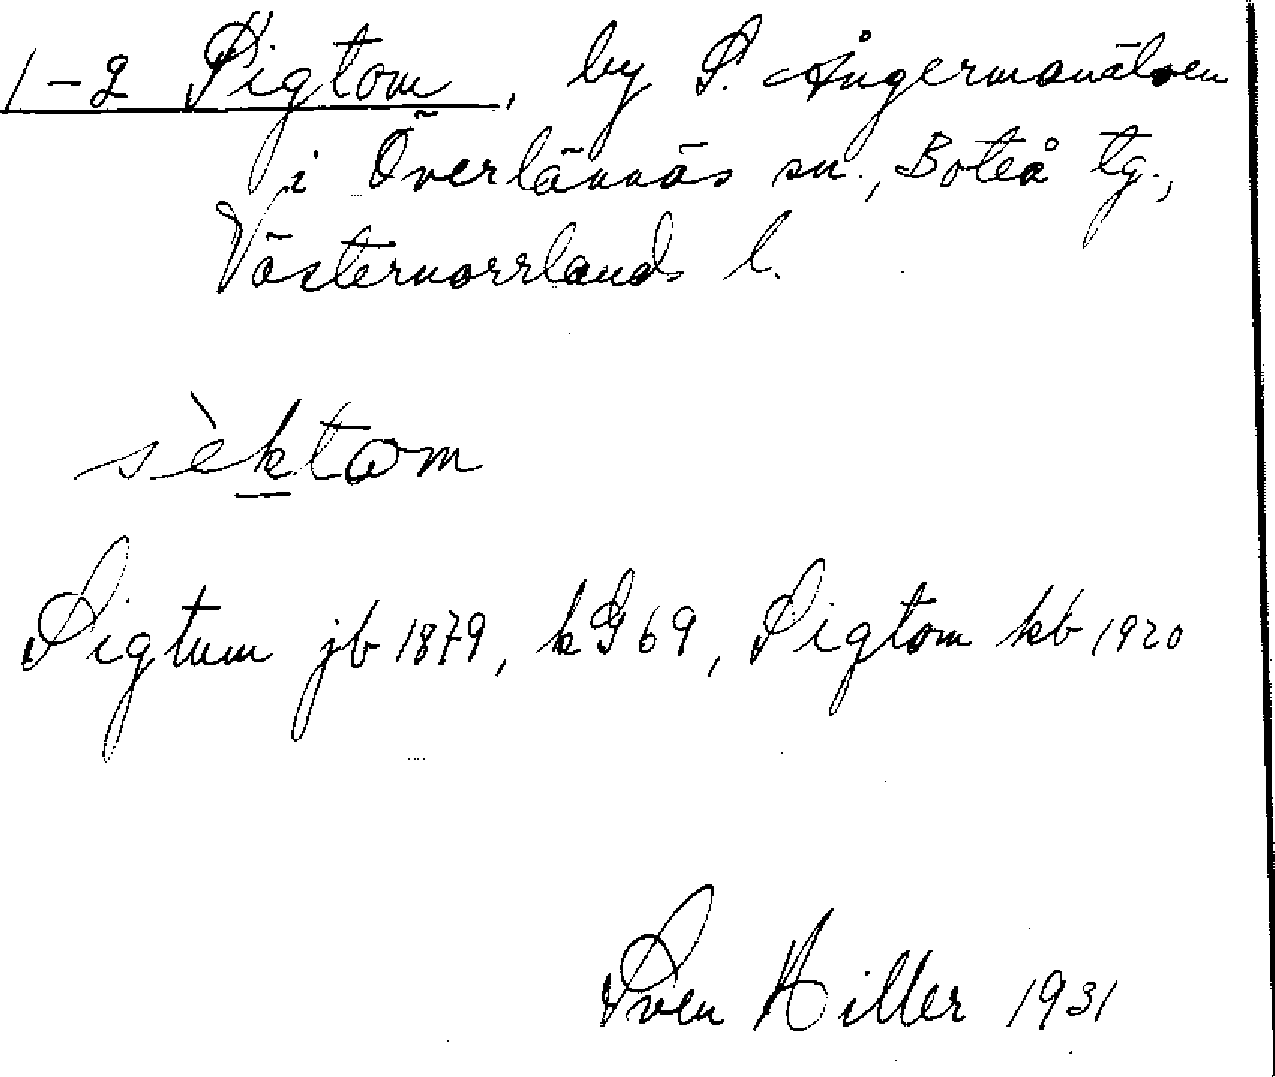 1-2 Sigtom, by S. Ångermanälven
i Överlännäs sn., Boteå tg.,
Västernorrlands l.
sèktom
Sigtum jb 1879, kG 69, Sigtom kb 1920
Sven Hiller 1931